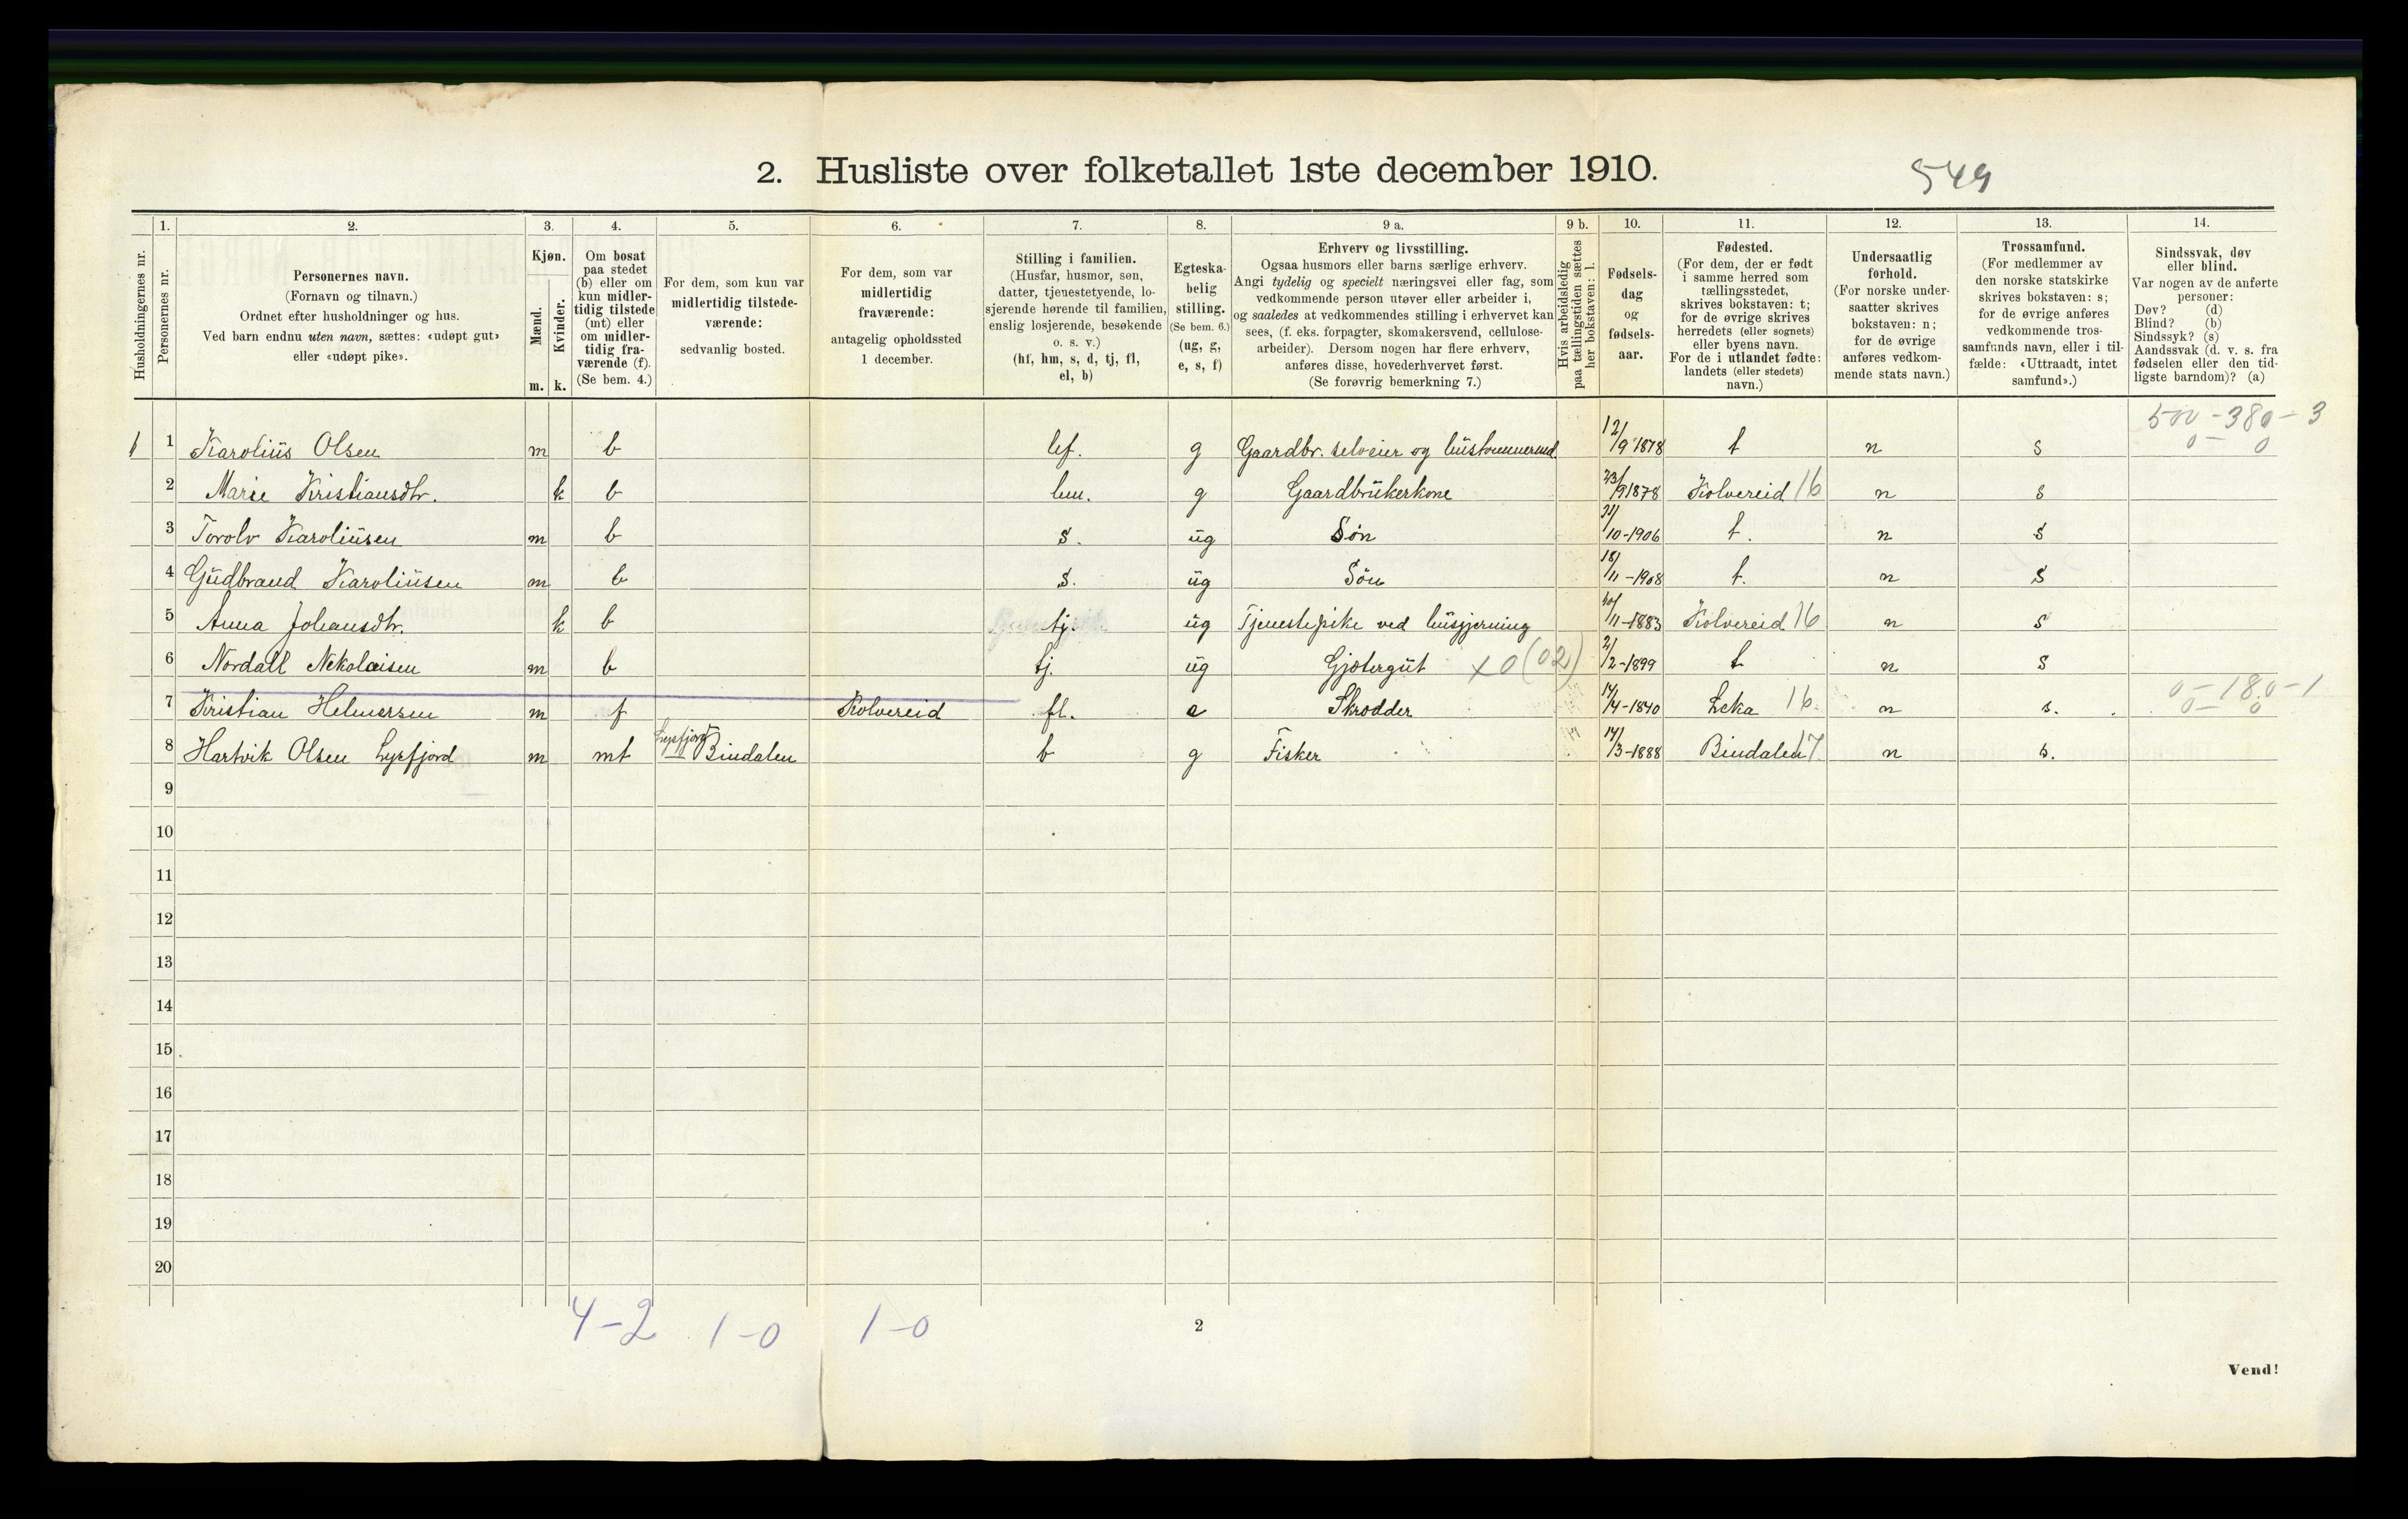 2. Husliste over folketallet 1ste december 1910.
549
Husholdningernes nr.
1. Personernes nr.
2. Personernes navn. (Fornavn og tilnavn.) Ordnet efter husholdninger og hus. Ved barn endnu uten navn, sættes: «udøpt gut» eller «udøpt pike».
3. Kjøn. Mænd. m. Kvinder. k.
4. Om bosat paa stedet (b) eller om kun midlertidig tilstede (mt) eller om midlertidig fraværende (f). (Se bem. 4.)
5. For dem, som kun var midlertidig tilstedeværende: sedvanlig bosted.
6. For dem, som var midlertidig fraværende: antagelig opholdssted 1 december.
7. Stilling i familien. (Husfar, husmor, søn, datter, tjenestetyende, losjerende hørende til familien, enslig losjerende, besøkende o. s. v.) (hf, hm, s, d, tj, fl, el, b)
8. Egteskabelig stilling. (Se bem. 6.) (ug, g, e, s, f)
9 a. Erhverv og livsstilling. Ogsaa husmors eller barns særlige erhverv. Angi tydelig og specielt næringsvei eller fag, som vedkommende person utøver eller arbeider i, og saaledes at vedkommendes stilling i erhvervet kan sees, (f. eks. forpagter, skomakersvend, cellulosearbeider). Dersom nogen har flere erhverv, anføres disse, hovederhvervet først. (Se forøvrig bemerkning 7.)
9 b. Hvis arbeidsledig paa tællingstiden sættes her bokstaven: l.
10. Fødselsdag og fødselsaar.
11. Fødested. (For dem, der er født i samme herred som tællingsstedet, skrives bokstaven: t; for de øvrige skrives herredets (eller sognets) eller byens navn. For de i utlandet fødte: landets (eller stedets) navn.)
12. Undersaatlig forhold. (For norske undersaatter skrives bokstaven: n; for de øvrige anføres vedkommende stats navn.)
13. Trossamfund. (For medlemmer av den norske statskirke skrives bokstaven: s; for de øvrige anføres vedkommende trossamfunds navn, eller i tilfælde: «Uttraadt, intet samfund».)
14. Sindssvak, døv eller blind. Var nogen av de anførte personer: Døv? (d) Blind? (b) Sindssyk? (s) Aandssvak (d. v. s. fra fødselen eller den tidligste barndom)? (a)
500-380-3
0-0
1 1 Karolius Olsen m b hf. g Gaardbr. selveier og hustømmermd. 12/9 1878 t n s
2 Marie Kristiansdtr. k b hm. g Gaardbrukerkone 23/9 1878 Kolvereid 16 n s
3 Torolv Karoliusen m b s. ug Søn /10-1906 t. n s
4 Gudbrand Karoliusen m b s. ug Søn 18/11-1908 t. n s
5 Anna Johansdtr. k b tj. ug Tjenestepike ved husgjerning /11-1883 Kolvereid 16 n s
6 Nordall Nekolaisen m b tj. ug Gjætergut x0(02) 2/2-1899 t n s
7 Kristian Helmersen m f Kolvereid fl. e Skrodder 14/4-1840 Leka 16. n s. 0-180-1
0-0
8 Hartvik Olsen Lysfjord m mt Lysfjord Bindalen b g Fisker 14/3-1888 Bindalen 17. n s.
9
10
11
12
13
14
15
16
17
18
19
20
4-2 1-0 1-0
2
Vend!